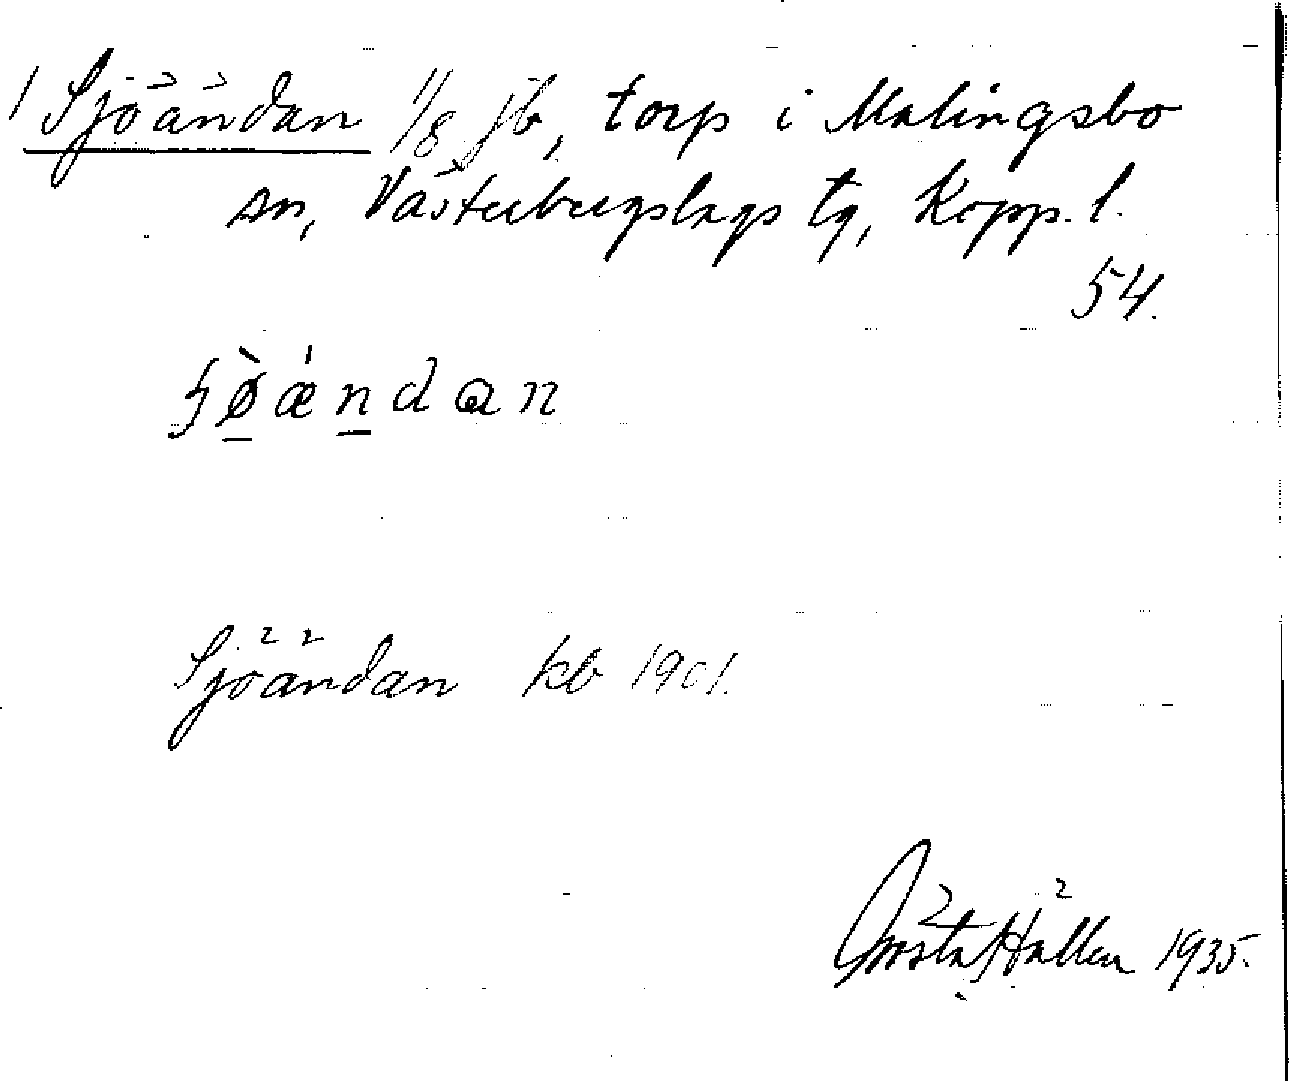 1 Sjöändan 1/8 jb, torp i Malingsbo
sn, Västerbergslags tg, Kopp. l.
54.
Sjöändan kb 1901.
Gösta Hällen 1935.